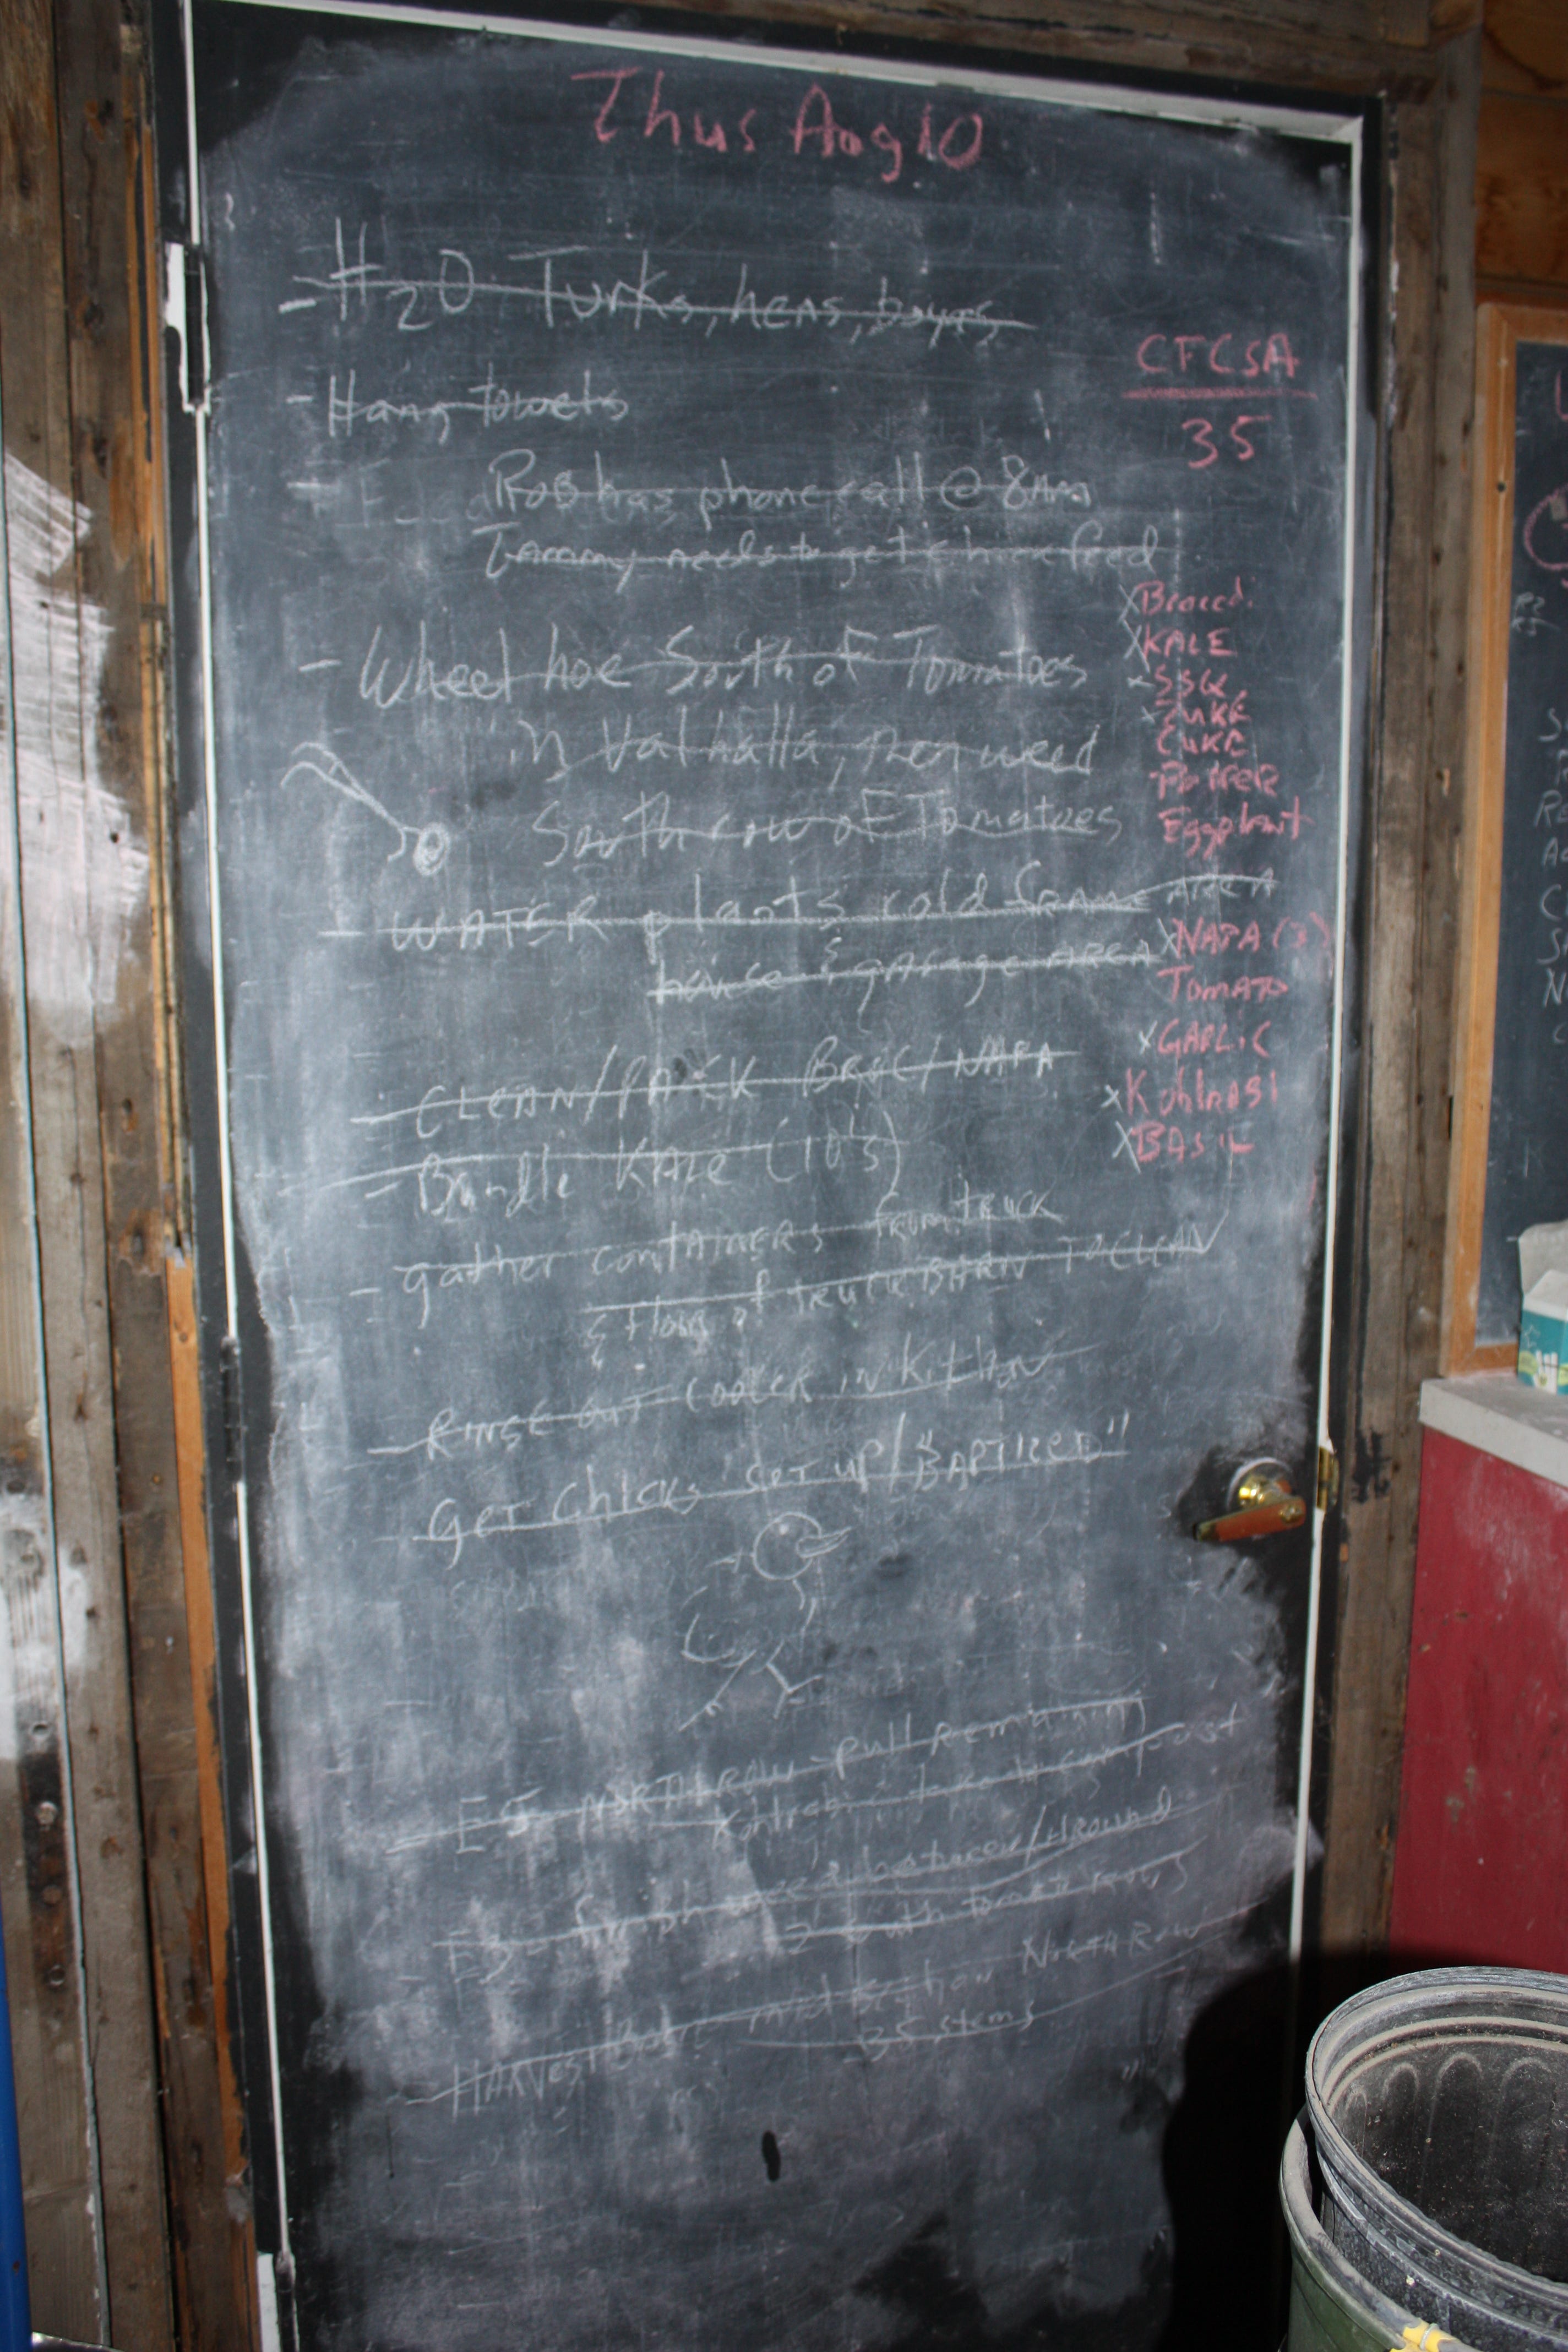 Thus Aug 10
- H2O Turks, hens, boyas
- Hang towels
- Rob has phone call @ 8am
Tammy needs to get chick feed
- Wheel hoe South of Tomatoes
in Valhalla, then weed
South row of Tomatoes
- WATER plants cold frame AREA
house & garage AREA
- CLEAN/PACK BROC/NAPA
- Bundle KALE (10's)
- gather containers from truck
& floor of truck BARN TO CLEAN
- RINSE OUT COOLER IN KITCHEN
- GET Chicks SET UP/"BAPTIZED"
- E5 NORTH ROW - pull REMAINING
Kohlrabi, take to compost
- E3 - finish weed between/AROUND
2 South tomato rows
- HARVEST
North Row
35 stems
CFCSA
35
X Broccoli
X KALE
x SSQ
x ZUKE
CUKE
PEPPER
Eggplant
X NAPA
TOMATO
x GARLIC
x Kohlrabi
X BASIL